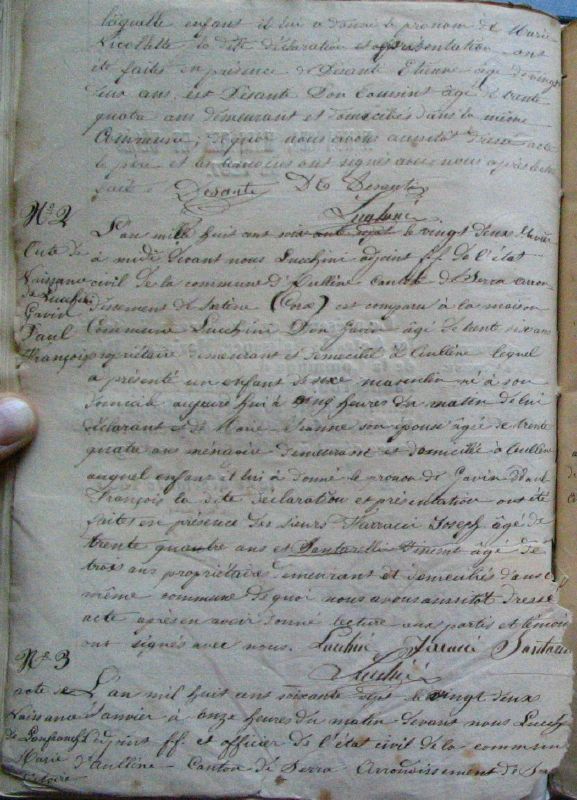 laquelle enfant et lui a donné le prenom de Marie
Nicollette la dite déclaration et présentation ont
été faites en présence de Desanti Etienne âgé de vingt
deux ans et Desanti Don Cousint âgé de trente
quatre ans demeurant et domiciliés dans la même
Commune, de quoi nous avons aussitôt dressé acte
le père et les témoins ont signés avec nous après lecture
fait Desanti De Desanti
Lucchini
No 2
L'an mille huit cent soixante sept le vingt deux Janvier
Acte de à midi devant nous Lucchini adjoint ff. de l'état
Naissance civil de la commune d'Aullène Canton de Serra arron
de Lucchini dissement de Sartène (Corse) est comparu à la maison
Gavin Commune Lucchini Don Gavin âgé de trente six ans
Paul
François propriétaire demeurant et domicilié à Aullène lequel
a présenté un enfant de sexe masculin né à son
domicile aujourd'hui à cinq heures du matin de lui
déclarant et de Marie Jeanne son épouse âgée de trente
quatre ans ménagère demeurant et domiciliée à Aullène
auquel enfant et lui à donné le prenom de Gavin Paul
François la dite déclaration et présentation ont été
faites en présence des sieurs Marracci Joseph âgé de
trente quatre ans et Santarelli Vincent âgé de
trois ans propriétaire demeurant et domiciliés dans
même commune de quoi nous avons aussitôt dressé
acte après en avoir donné lecture aux partis et témoins
ont signés avec nous. Lucchini Marracci Santare
Lucchini
No 3
acte de L'an mil huit cent soixante sept le vingt deux
Naissance Janvier à onze heures du matin devant nous Lucch
adjoint ff. et officier de l'état civil de la commun
Marie d'Aullène Canton de Serra Arrondissement de Sar